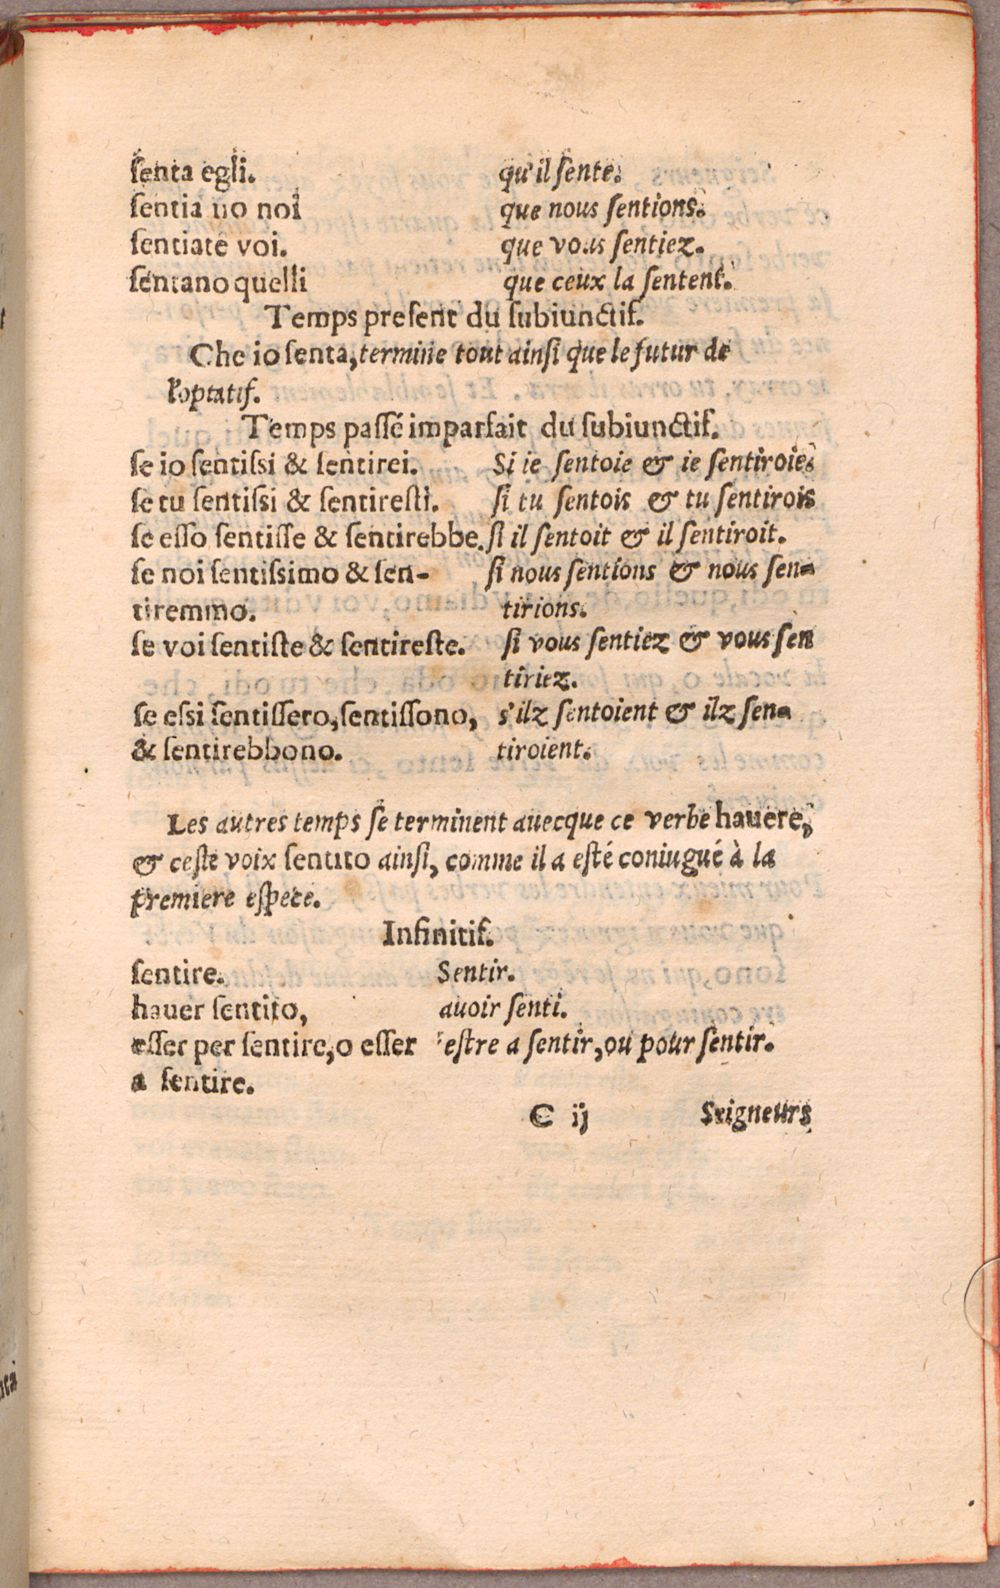 ſenta egli. qu'il ſente.
ſentia no noi que nous ſentions.
ſentiate voi. que vous ſentiez.
ſentano quelli que ceux la ſentent.
Temps preſent du ſubiunctif.
Che io ſenta, termine tout ainſi que le futur de
l'optatif.
Temps paſſé imparfait du ſubiunctif.
ſe io ſentiſſi & ſentirei. Si ie ſentoie & ie ſentiroie.
ſe tu ſentiſſi & ſentireſti. ſi tu ſentois & tu ſentirois
ſe eſſo ſentiſſe & ſentirebbe. ſi il ſentoit & il ſentiroit.
ſe noi ſentiſſimo & ſen- ſi nous ſentions & nous ſen-
tiremmo. tirions.
ſe voi ſentiſte & ſentireſte. ſi vous ſentiez & vous ſen
tiriez.
ſe eſſi ſentiſſero, ſentiſſono, s'ilz ſentoient & ilz ſen-
& ſentirebbono. tiroient.
Les autres temps ſe terminent auecque ce verbe hauere,
& ceſte voix ſentito ainſi, comme il a eſté coniugué à la
premiere eſpece.
Infinitif.
ſentire. Sentir.
hauer ſentito, auoir ſenti.
eſſer per ſentire, o eſſer eſtre a ſentir, ou pour ſentir.
a ſentire.
C ij Seigneurs